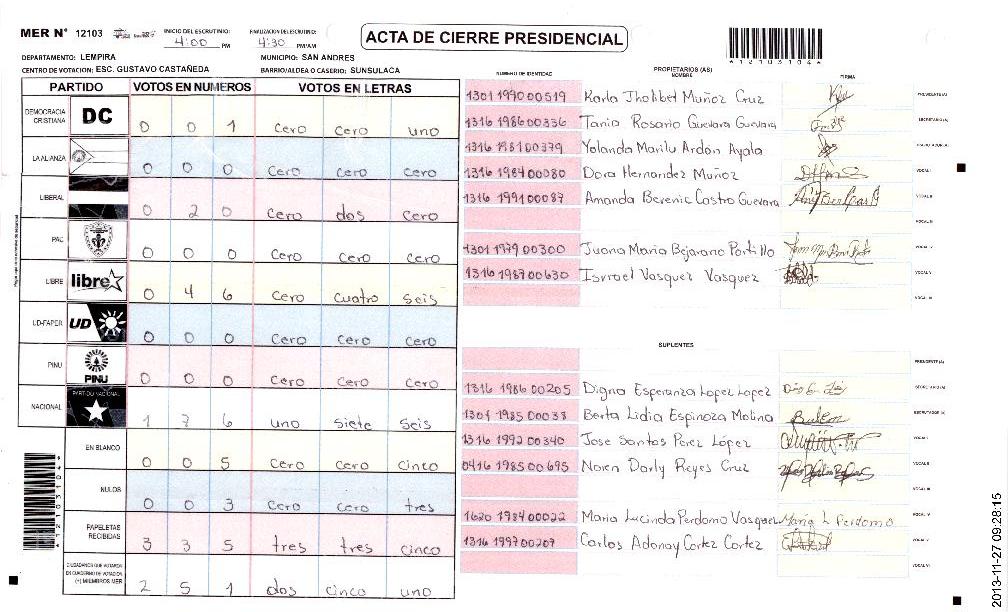 MER N° 12103
INICIO DEL ESCRUTINIO:
4:00 PM
FINALIZACION ESCRUTINIO:
4:30 PM/AM
ACTA DE CIERRE PRESIDENCIAL
DEPARTAMENTO: LEMPIRA
MUNICIPIO: SAN ANDRES
CENTRO DE VOTACION: ESC. GUSTAVO CASTAÑEDA
BARRIO/ALDEA O CASERIO: SUNSULACA
PARTIDO VOTOS EN NUMEROS VOTOS EN LETRAS
DEMOCRACIA CRISTIANA DC 0 0 1 cero cero uno
LA ALIANZA 0 0 0 cero cero cero
LIBERAL 0 2 0 cero dos cero
PAC 0 0 0 cero cero cero
LIBRE libre 0 4 6 cero cuatro seis
UD-FAPER UD 0 0 0 cero cero cero
PINU PINU 0 0 0 cero cero cero
NACIONAL PARTIDO NACIONAL 1 7 6 uno siete seis
EN BLANCO 0 0 5 cero cero cinco
NULOS 0 0 3 cero cero tres
PAPELETAS RECIBIDAS 3 3 5 tres tres cinco
CIUDADANOS QUE VOTARON EN CUADERNO DE VOTACION (+) MIEMBROS MER 2 5 1 dos cinco uno
NUMERO DE IDENTIDAD
PROPIETARIOS (AS)
NOMBRE
FIRMA
1301 1990 00519 Karla Jholibet Muñoz Cruz PRESIDENTE(A)
1316 1986 00336 Tania Rosario Guevara Guevara SECRETARIO(A)
1316 1981 00379 Yolanda Marilu Ardon Ayala
1316 1984 00080 Dora Hernandez Muñoz VOCAL I
1316 1991 00087 Amanda Berenic Castro Guevara VOCAL II
VOCAL III
1301 1979 00300 Juana Maria Bejarano Portillo VOCAL IV
1316 1987 00630 Isrrael Vasquez Vasquez VOCAL V
VOCAL VI
SUPLENTES
PRESIDENTE (A)
1316 1986 00205 Digna Esperanza Lopez Lopez SECRETARIO (A)
1301 1985 00038 Berta Lidia Espinoza Molina ESCRUTADOR (A)
1316 1992 00340 Jose Santos Perez López VOCAL I
0416 1985 00695 Noren Darly Reyes Cruz VOCAL II
VOCAL III
1620 1984 00022 Maria Lucinda Perdomo Vasquez Maria L Perdomo VOCAL IV
1316 1997 00207 Carlos Adonay Cortez Cortez VOCAL V
VOCAL VI
2013-11-27 09:28:15